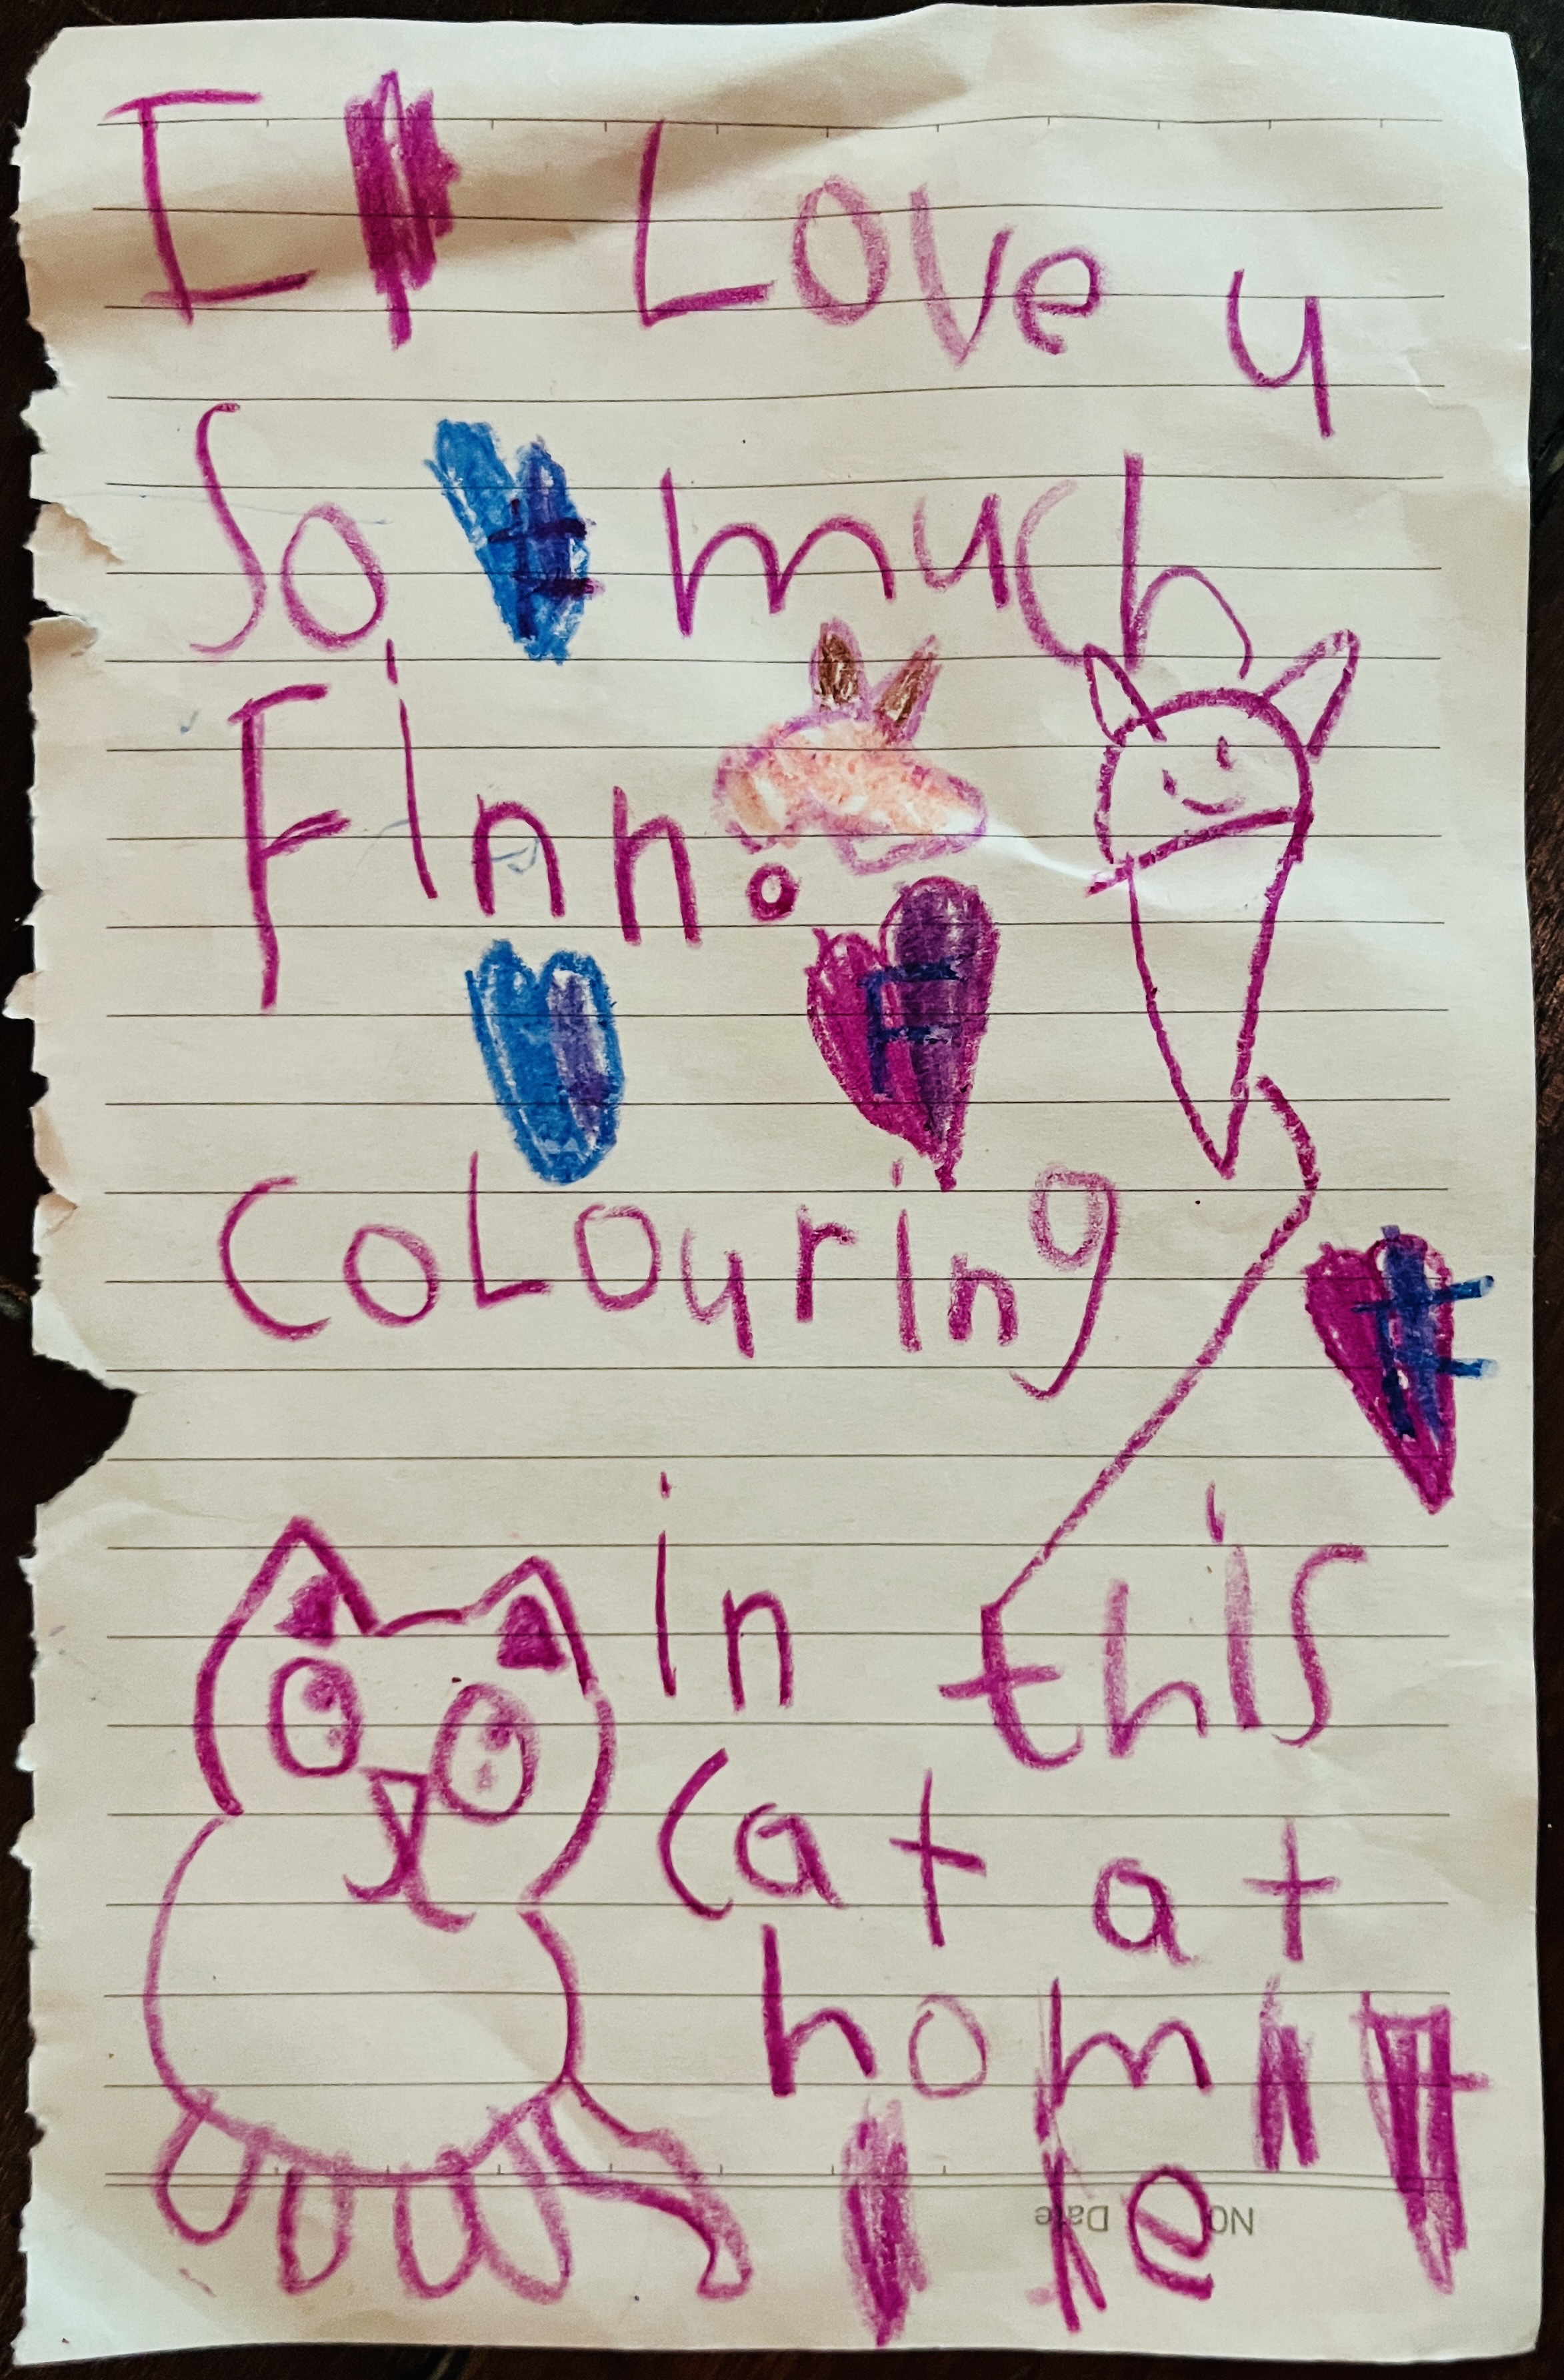 I Love u
So much
Finn.
F
coLouring
in this
cat at
home
NO. Date